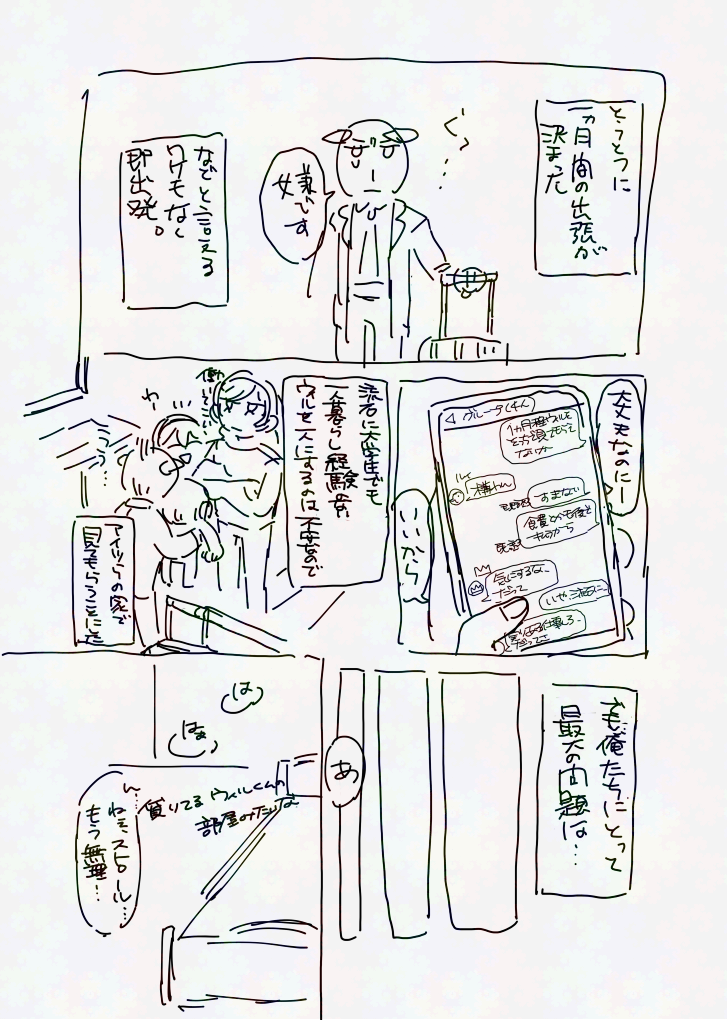 とつとつに
一ヵ月間の出張が
決まった
ぐっ…
嫌です
などと言える
わけもなく
即出発。
大丈夫なのにー
グループ(4人)
1ヵ月程ウィルを
そっち頼んでもらえ
ないか
ルイ
構わん
すまない
食費とかも後で
払うから
既読
気にするな、
だって
いや、流石に、
いいから
流石に大学生でも
一人暮らし経験なく
ウィルを一人にするのは不安なので
働いてこい
わー
ううっ…
アイツらの家で
見てもらうことにした
でも俺たちにとって
最大の問題は…
あ
はっ
はぁ
ん…
ねぇ、スロール…
もう無理…
貸りてるウィルくんの
部屋みたいな